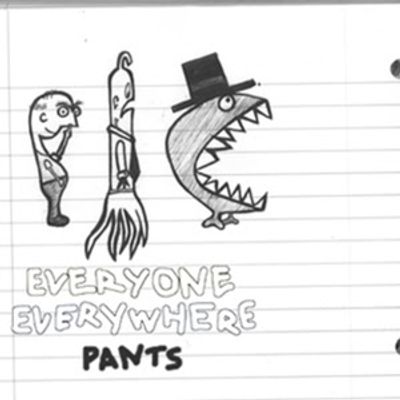 EVERYONE
EVERYWHERE
PANTS